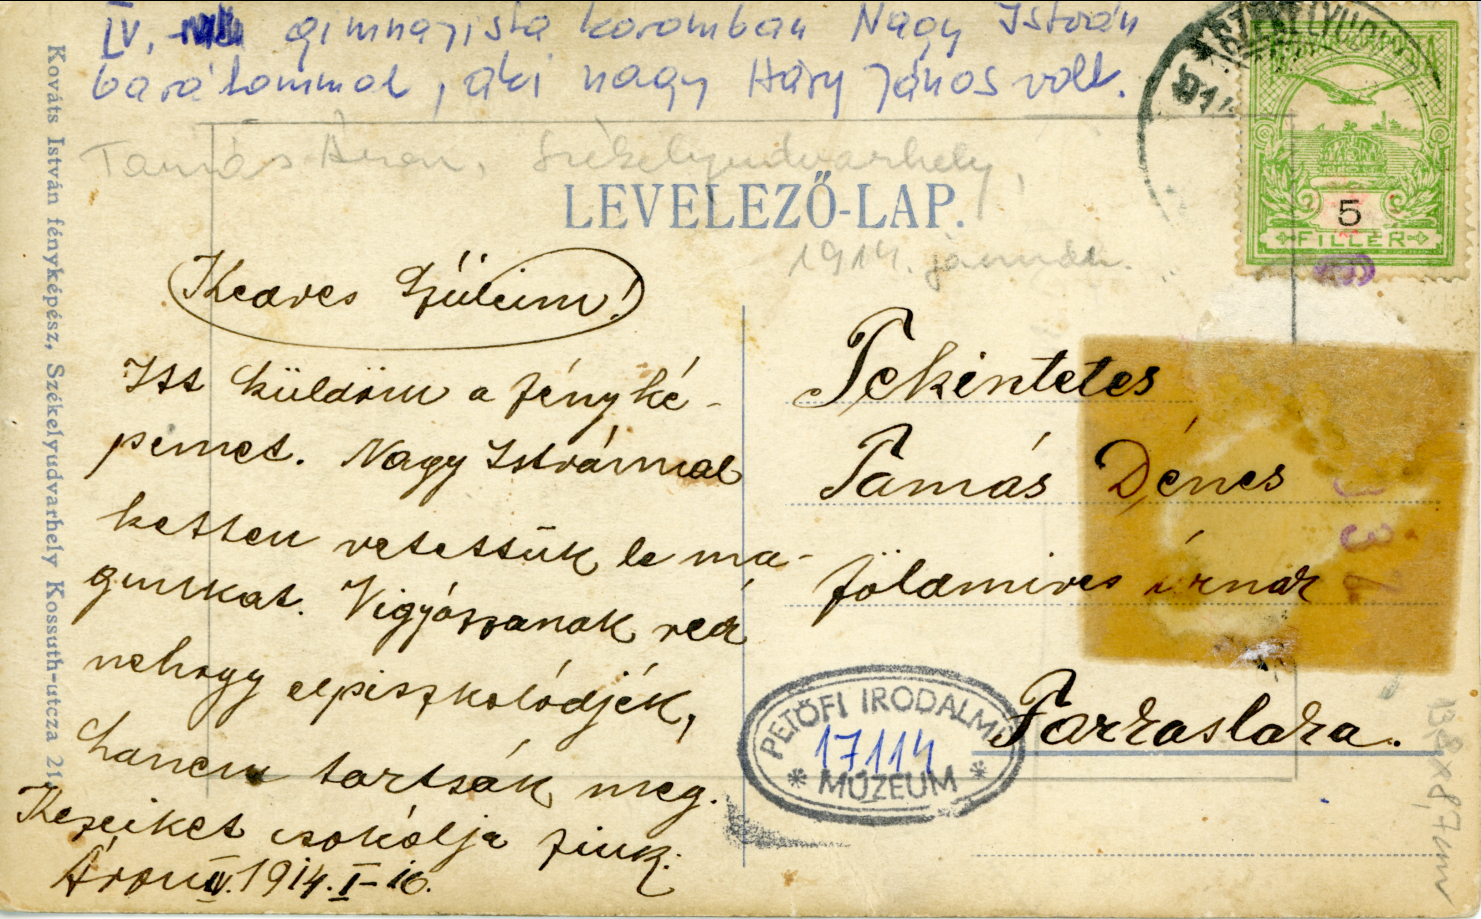 IV. gimnazista koromban Nagy István
barátommal, aki nagy Háry János volt.
Tamás Áron, Székelyudvarhely,
LEVELEZŐ-LAP.
1914. január.
SZÉKELYUDVA
5
FILLÉR
Kováts István fényképész, Székelyudvarhely Kossuth-utcza 21.
Kedves Szüleim!
Itt küldöm a fényké-
pemet. Nagy Istvánnal
ketten vetettük le ma-
gunkat. Vigyázzanak reá
nehogy elpiszkolódjék,
hanem tartsák meg.
Kezeiket csókolja fiuk:
Áron IV. 1914. I-10.
Tekintetes
Tamás Dénes
földmives úrnak
Farkaslaka.
PETŐFI IRODALMI
17114
* MÚZEUM *
13,8x8,7 cm